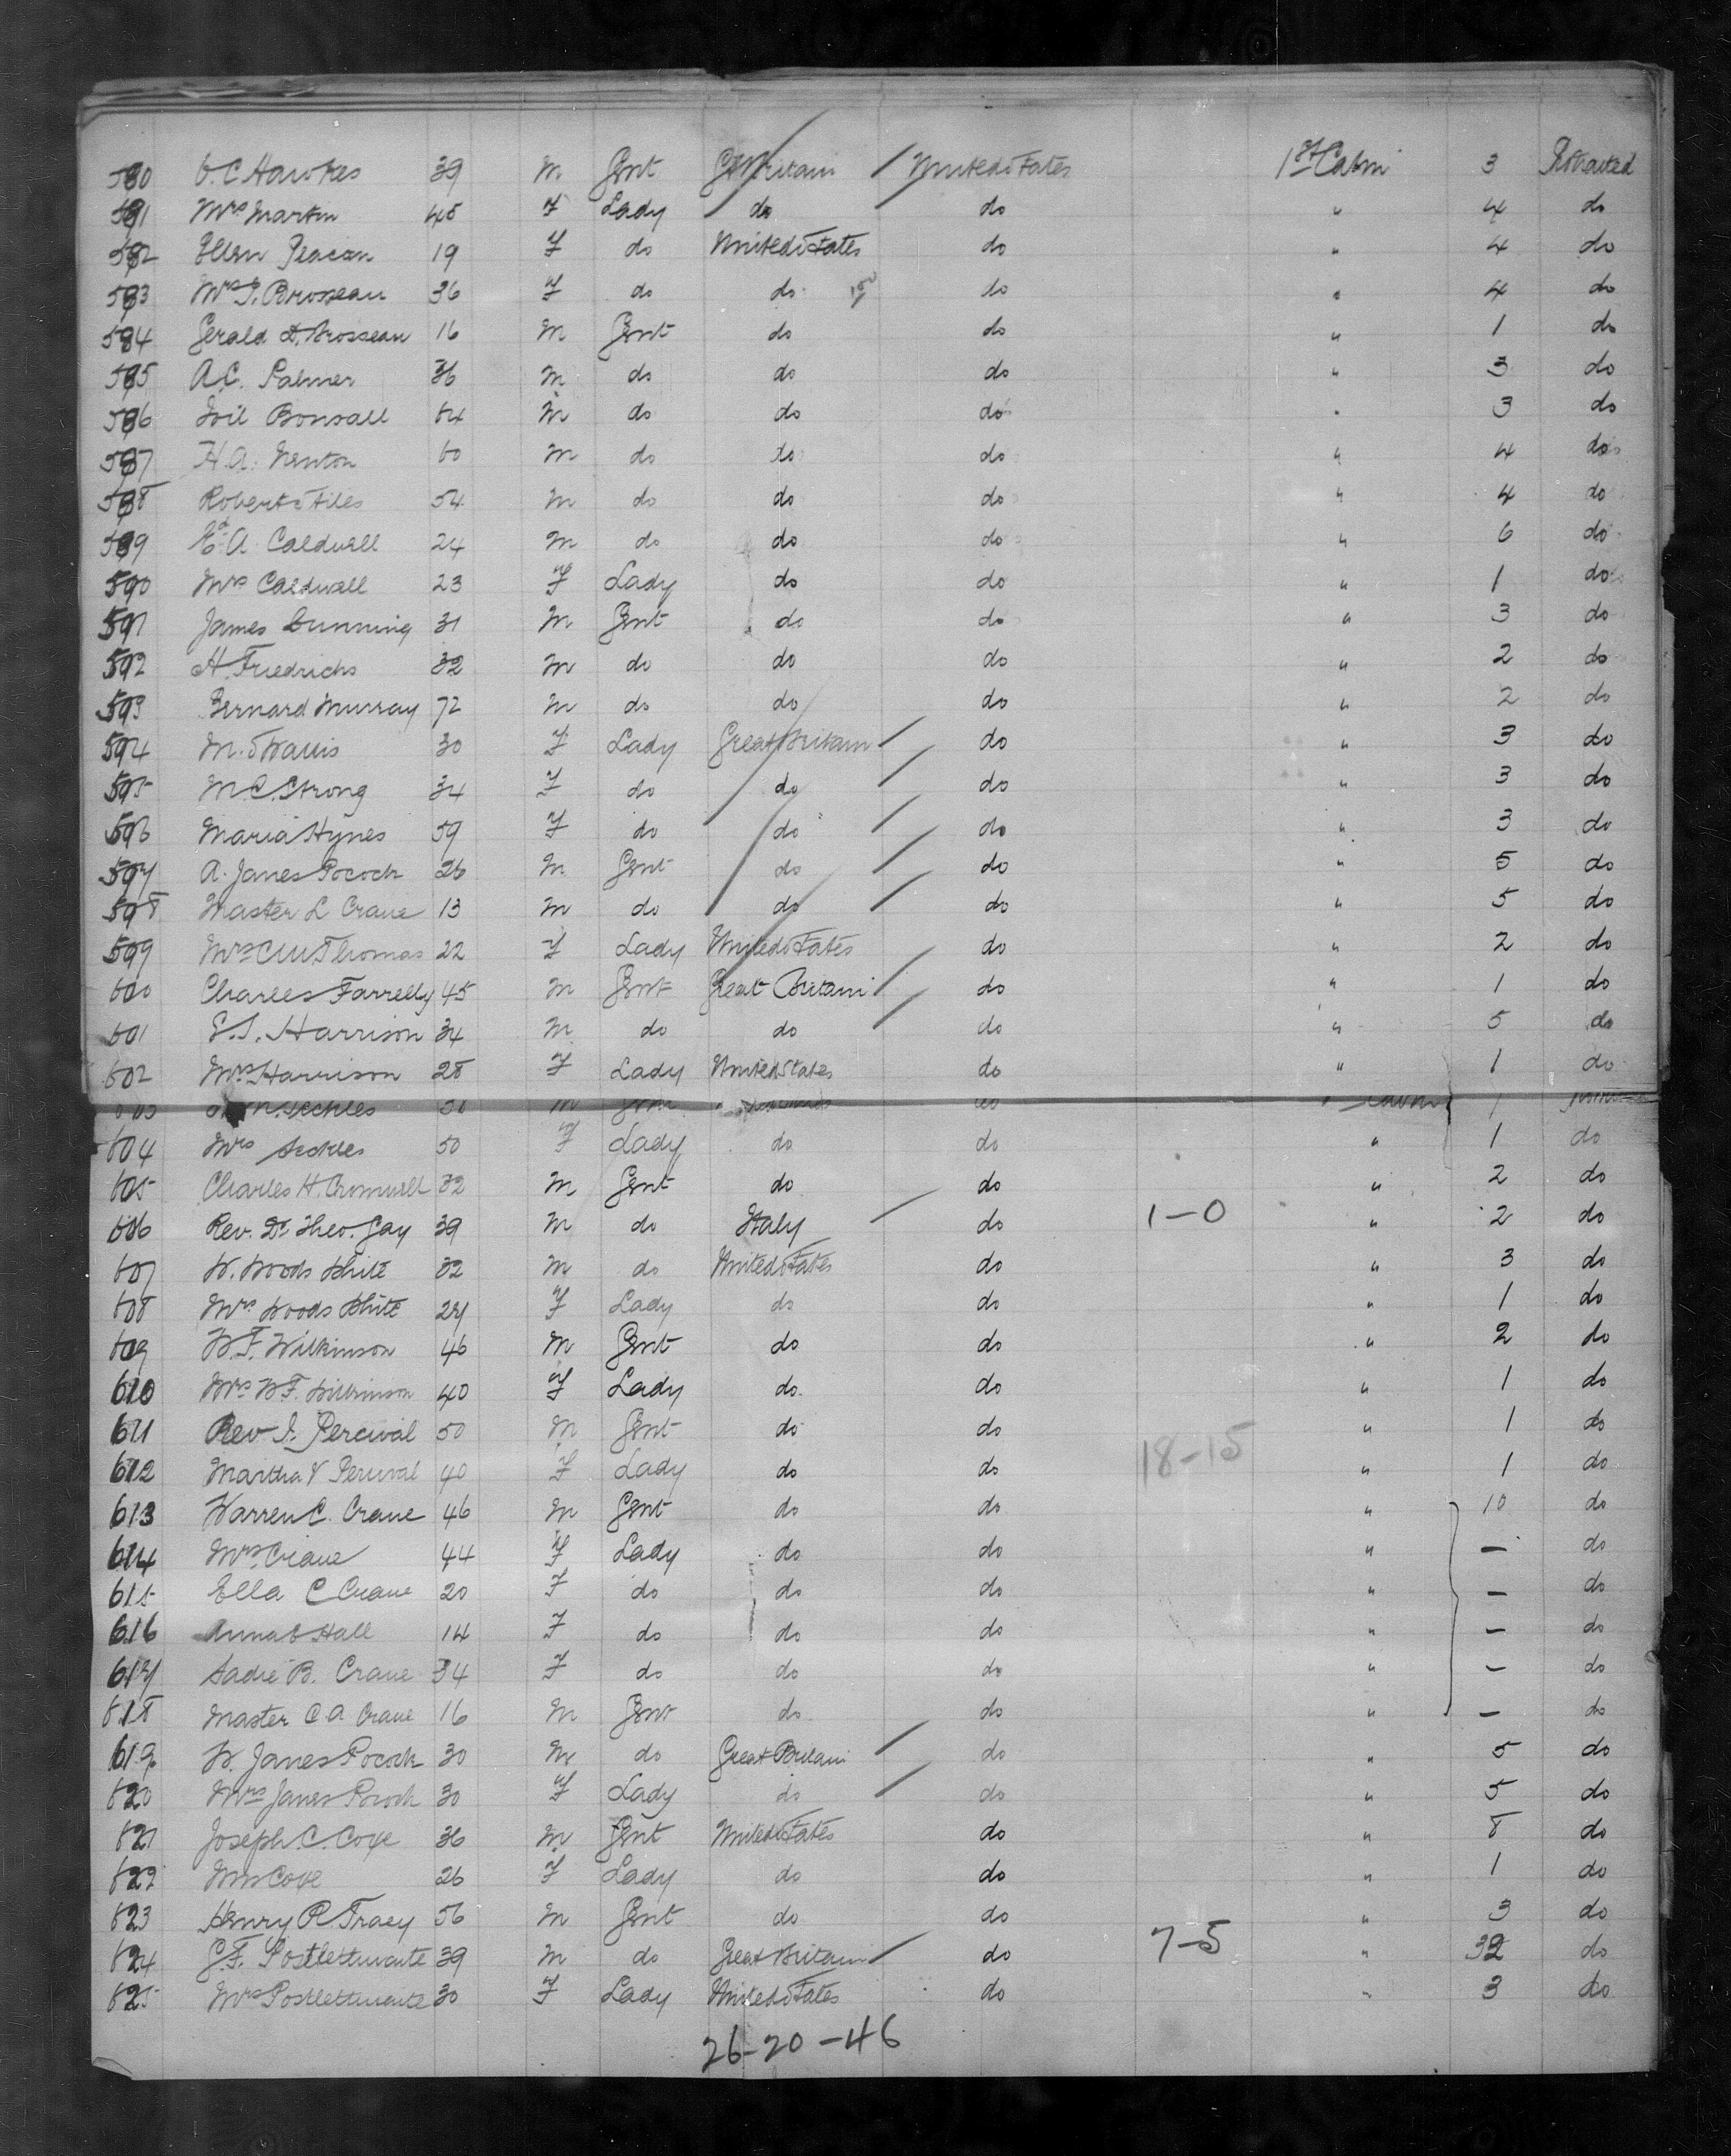 580 C. C. Hawkes 39 M Gent Gt Britain United States 1st Cabin 3 Protracted
581 Mrs Martin 45 F Lady do do " 4 do
582 Ellen Deacon 19 F do United States do " 4 do
583 Mrs I. Brosseau 36 F do do do " 4 do
584 Gerald D. Brosseau 16 M Gent do do " 1 do
585 A.C. Palmer 36 M do do do " 3 do
586 Bonsall 64 M do do do " 3 do
587 H.A. Newton 60 M do do do " 4 do
588 Robert Stiles 54 M do do do " 4 do
589 Ed A. Caldwell 24 M do do do " 6 do
590 Mrs Caldwell 23 F Lady do do " 1 do
591 James Cunning 31 M Gent do do " 3 do
592 H. Friedrichs 32 M do do do " 2 do
593 Bernard Murray 72 M do do do " 2 do
594 M. Travis 30 F Lady Great Britain do " 3 do
595 M.C. Strong 34 F do do do " 3 do
596 Maria Hynes 59 F do do do " 3 do
597 A. Janes Pocock 26 M Gent do do " 5 do
598 Master L Crane 13 M do do do " 5 do
599 Mrs C W Thomas 22 F Lady United States do " 2 do
600 Charles Farrelly 45 M Gent Great Britain do " 1 do
601 E.S. Harrison 34 M do do do " 5 do
602 Mrs Harrison 28 F Lady United States do " 1 do
603 Seckles M do 1
604 Mrs Seckles 50 F Lady do do " 1 do
605 Charles H. Cromwell 32 M Gent do do " 2 do
606 Rev. Dr Theo. Gay 39 M do Italy do 1-0 " 2 do
607 W. Woods White 32 M do United States do " 3 do
608 Mrs Woods White 27 F Lady do do " 1 do
609 W.F. Wilkinson 46 M Gent do do " 2 do
610 Mrs W.F. Wilkinson 40 F Lady do do " 1 do
611 Rev I. Percival 50 M Gent do do " 1 do
612 Martha V Percival 40 F Lady do do 18-15 " 1 do
613 Warren C. Crane 46 M Gent do do " 10 do
614 Mrs Crane 44 F Lady do do " — do
615 Ella C Crane 20 F do do do " — do
616 Anna E Hall 14 F do do do " — do
617 Sadie B. Crane 34 F do do do " — do
618 Master C.A. Crane 16 M Gent do do " — do
619 W. Janes Pocock 30 M do Great Britain do " 5 do
620 Mrs Janes Pocock 30 F Lady do do " 5 do
621 Joseph C. Coye 36 M Gent United States do " 8 do
622 Mrs Coye 26 F Lady do do " 1 do
623 Henry R Tracy 56 M Gent do do " 3 do
624 G.F. Postlethwaite 39 M do Great Britain do 7-5 " 32 do
625 Mrs Postlethwaite 30 F Lady United States do " 3 do
26-20-46